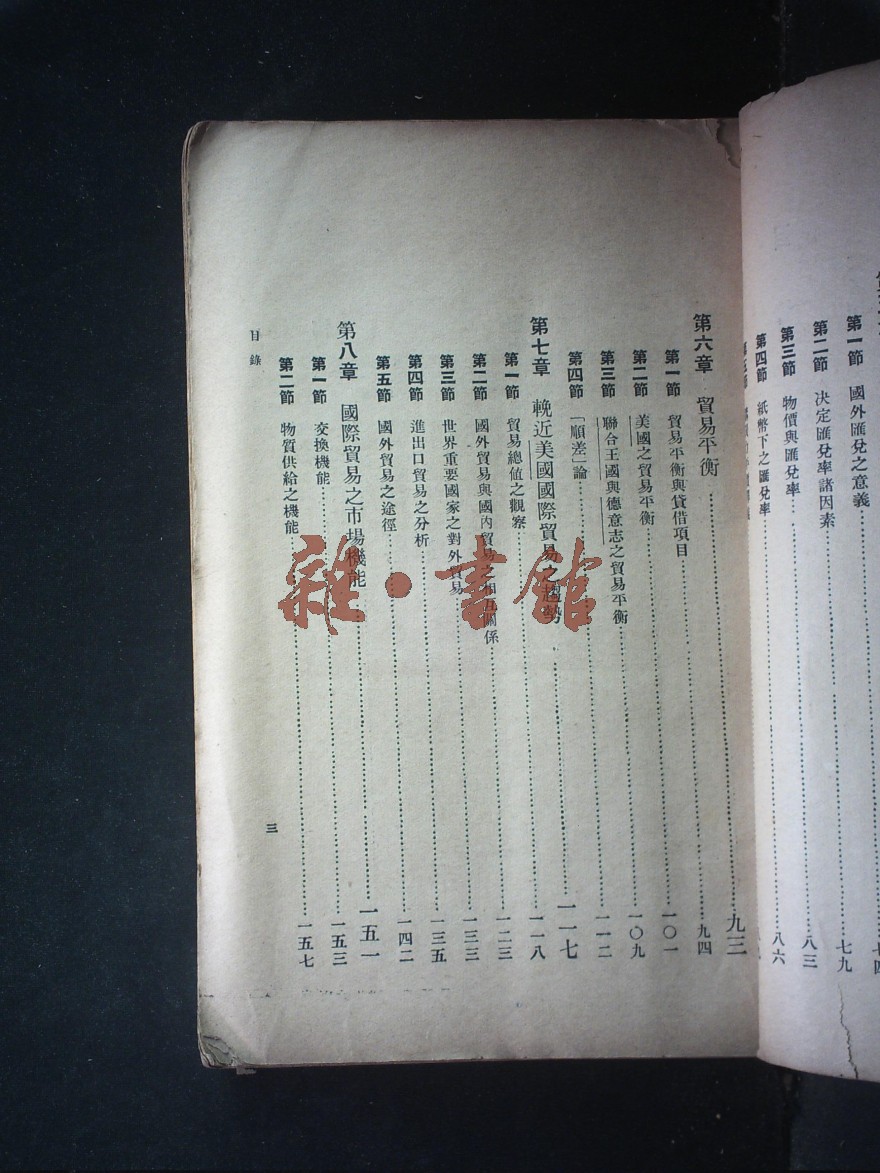 第一節 國外匯兌之意義……七四
第二節 決定匯兌率諸因素……七九
第三節 物價與匯兌率……八三
第四節 紙幣下之匯兌率……八六
第六章 貿易平衡……九三
第一節 貿易平衡與貸借項目……九四
第二節 美國之貿易平衡……一〇一
第三節 聯合王國與德意志之貿易平衡……一〇九
第四節 「順差」論……一一二
第七章 輓近美國國際貿易之趨勢……一一七
第一節 貿易總値之觀察……一一八
第二節 國外貿易與國內貿易之相互關係……一二三
第三節 世界重要國家之對外貿易……一三三
第四節 進出口貿易之分析……一三五
第五節 國外貿易之途徑……一四二
第八章 國際貿易之市場機能……一五一
第一節 交換機能……一五三
第二節 物質供給之機能……一五七
目錄
三
雜·書館